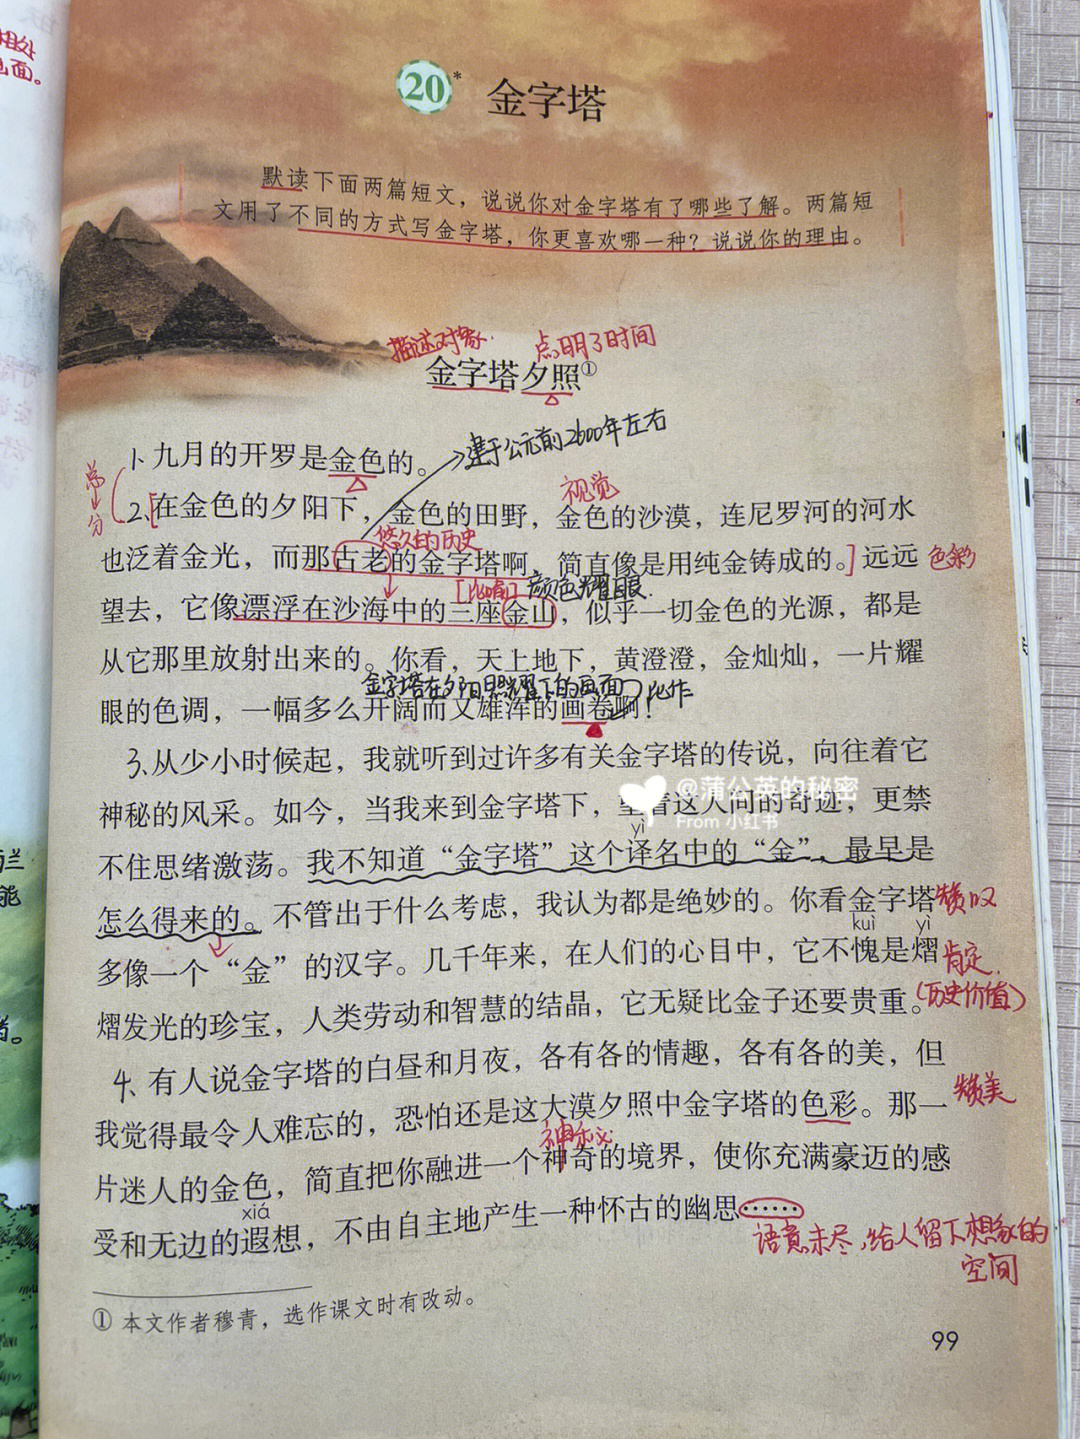 相处
画。
20*
金字塔
默读下面两篇短文，说说你对金字塔有了哪些了解。两篇短
文用了不同的方式写金字塔，你更喜欢哪一种？说说你的理由。
描述对象.
点明了时间
金字塔夕照①
建于公元前2600年左右
1、九月的开罗是金色的。
总
分
视觉
2、[在金色的夕阳下，金色的田野，金色的沙漠，连尼罗河的河水
悠久的历史
也泛着金光，而那古老的金字塔啊，简直像是用纯金铸成的。]远远
色彩
[比喻]
颜色耀眼.
望去，它像漂浮在沙海中的三座金山，似乎一切金色的光源，都是
从它那里放射出来的。你看，天上地下，黄澄澄，金灿灿，一片耀
金字塔在夕阳照耀下的画面
比作
眼的色调，一幅多么开阔而又雄浑的画卷啊！
3、从少小时候起，我就听到过许多有关金字塔的传说，向往着它
@蒲公英的秘密
From 小红书
神秘的风采。如今，当我来到金字塔下，望着这人间的奇迹，更禁
yì
不住思绪激荡。我不知道“金字塔”这个译名中的“金”，最早是
怎么得来的。不管出于什么考虑，我认为都是绝妙的。你看金字塔
赞叹
kuì yì
多像一个“金”的汉字。几千年来，在人们的心目中，它不愧是熠
肯定.
熠发光的珍宝，人类劳动和智慧的结晶，它无疑比金子还要贵重。
(历史价值)
4、有人说金字塔的白昼和月夜，各有各的情趣，各有各的美，但
赞美
我觉得最令人难忘的，恐怕还是这大漠夕照中金字塔的色彩。那一
神秘
片迷人的金色，简直把你融进一个神奇的境界，使你充满豪迈的感
xiá
受和无边的遐想，不由自主地产生一种怀古的幽思……
语意未尽，给人留下想象的
空间
① 本文作者穆青，选作课文时有改动。
99